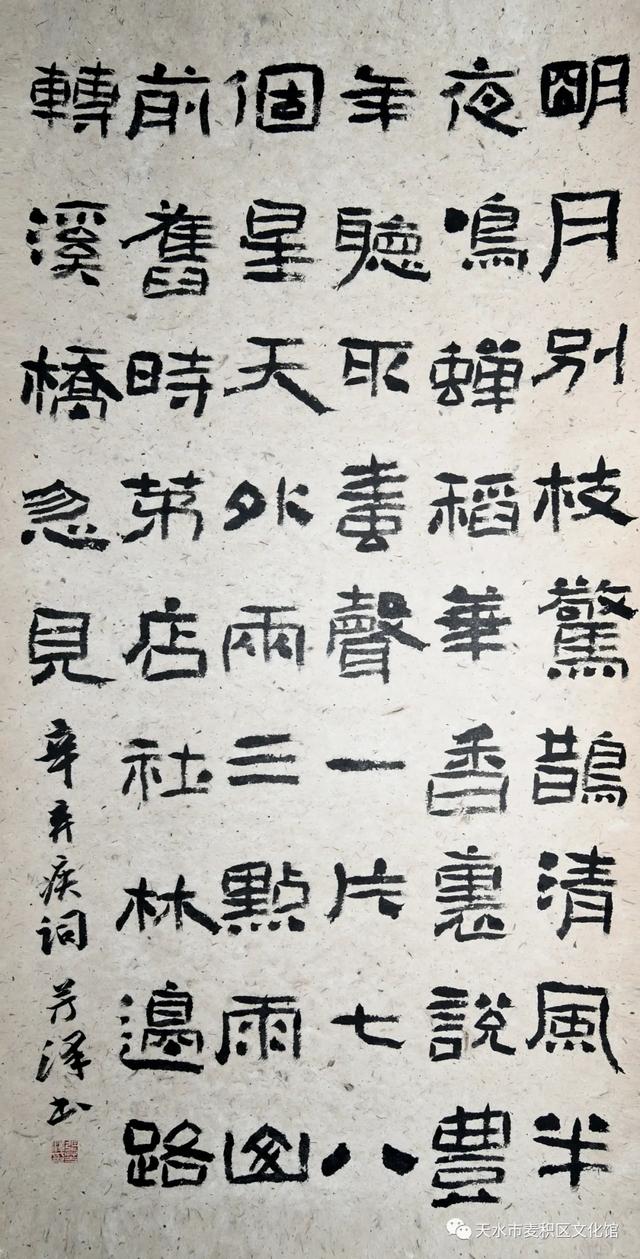 明月別枝驚鵲清風半
夜鳴蟬稻華香裏說豐
年聽取蛙聲一片七八
個星天外兩三點雨山
前舊時茅店社林邊路
轉溪橋忽見
辛弃疾词 芳泽书
天水市麦积区文化馆